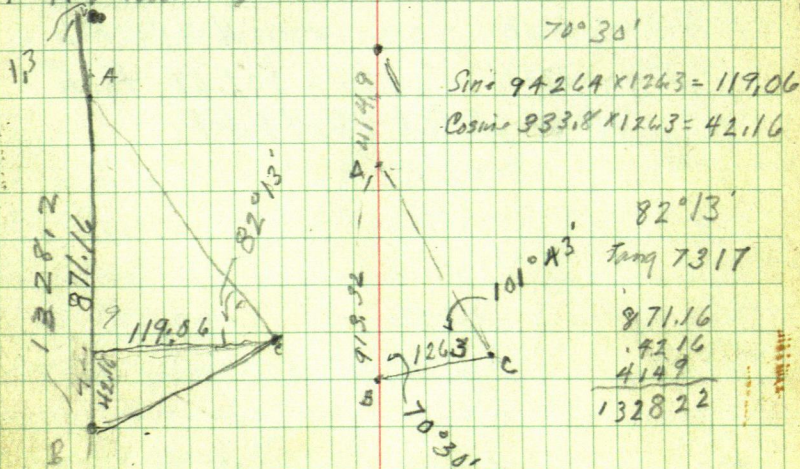 1,3
A
1328,2
871.16
82°13'
119,06
42.16
C
B
414,9
A
913.32
101°43'
1263
C
B
70°30'
70°30'
Sine 94264 x 1263 = 119,06
Cosine 333,8 x 1263 = 42.16
82°13'
Tang 7317
871.16
4216
4149
132822